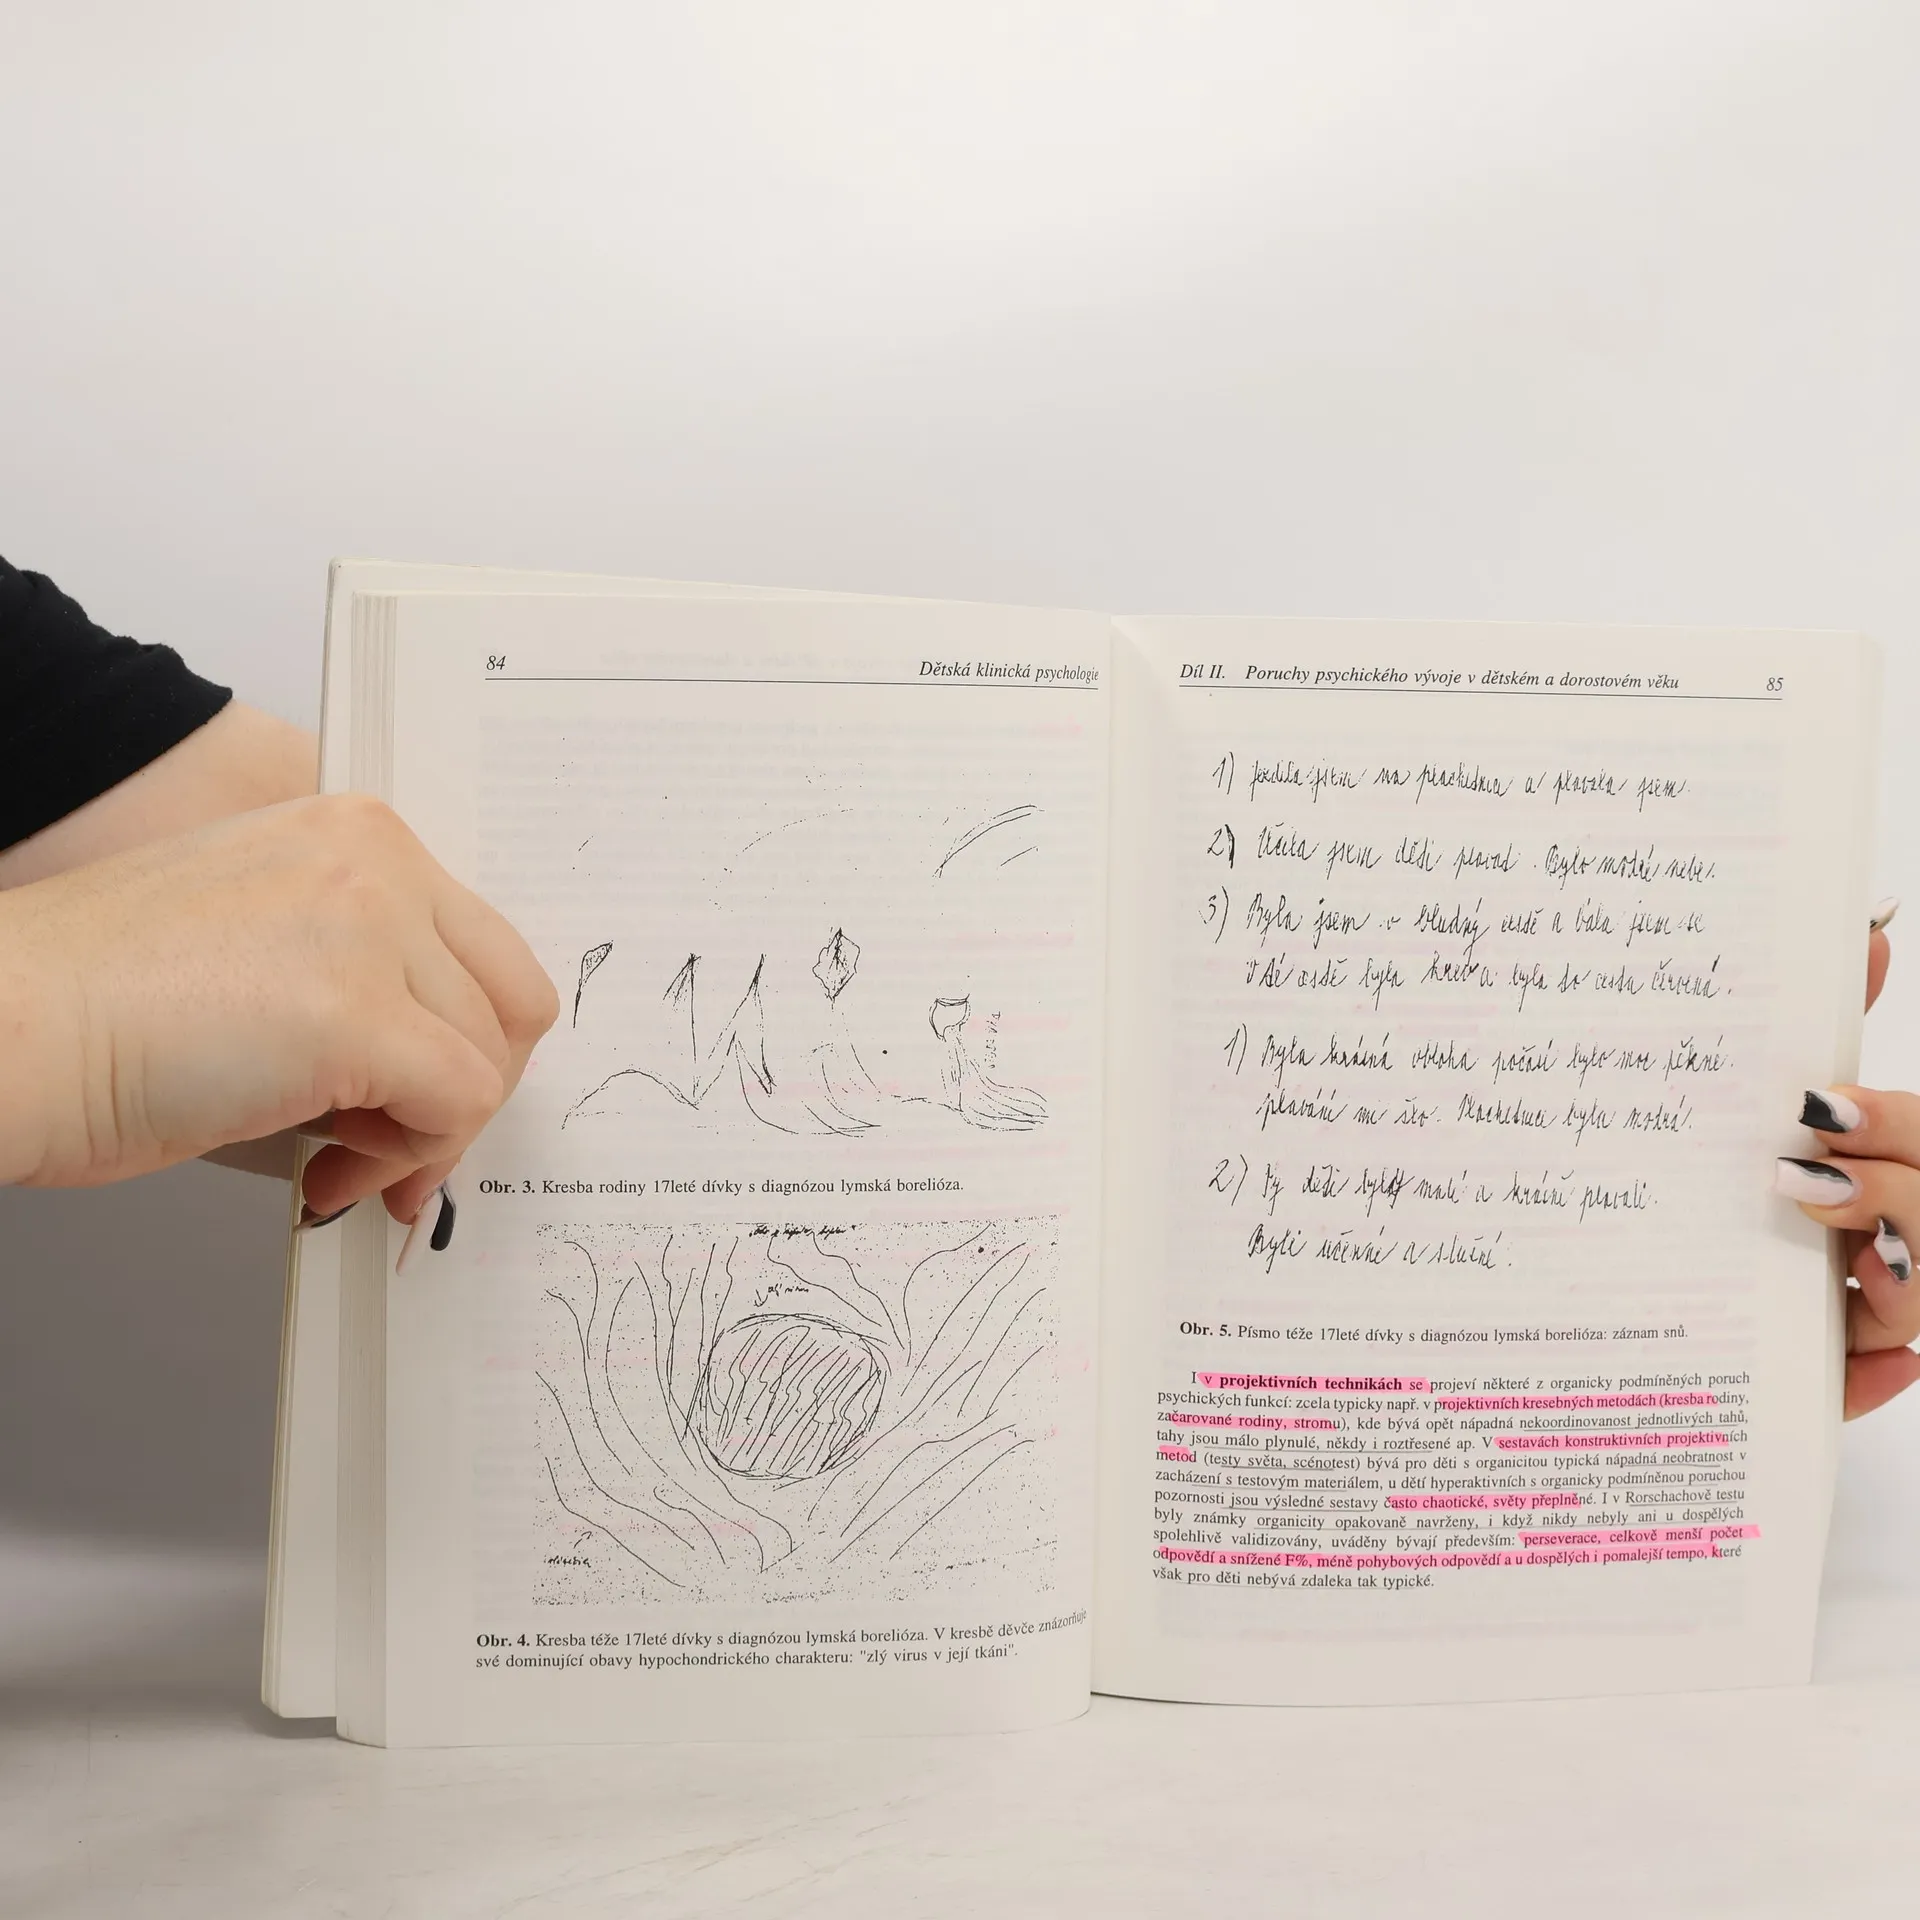 84 Dětská klinická psychologie
Obr. 3. Kresba rodiny 17leté dívky s diagnózou lymská borelióza.
Obr. 4. Kresba téže 17leté dívky s diagnózou lymská borelióza. V kresbě děvče znázorňuje
své dominující obavy hypochondrického charakteru: "zlý virus v její tkáni".
Díl II. Poruchy psychického vývoje v dětském a dorostovém věku 85
1) jezdila jsem na plachetnici a plavala jsem.
2) Učila jsem děti plavat. Bylo modré nebe.
3) Byla jsem v bludný cestě a bála jsem se
v té cestě byla krev a byla to cesta červená.
1) Byla krásná obloha počasí bylo moc pěkné.
plavání mi šlo. Plachetnice byla modrá.
2) Ty děti byly malé a krásně plavali.
Byli učenné a slušné.
Obr. 5. Písmo téže 17leté dívky s diagnózou lymská borelióza: záznam snů.
I v projektivních technikách se projeví některé z organicky podmíněných poruch
psychických funkcí: zcela typicky např. v projektivních kresebných metodách (kresba rodiny,
začarované rodiny, stromu), kde bývá opět nápadná nekoordinovanost jednotlivých tahů,
tahy jsou málo plynulé, někdy i roztřesené ap. V sestavách konstruktivních projektivních
metod (testy světa, scénotest) bývá pro děti s organicitou typická nápadná neobratnost v
zacházení s testovým materiálem, u dětí hyperaktivních s organicky podmíněnou poruchou
pozornosti jsou výsledné sestavy často chaotické, světy přeplněné. I v Rorschachově testu
byly známky organicity opakovaně navrženy, i když nikdy nebyly ani u dospělých
spolehlivě validizovány, uváděny bývají především: perseverace, celkově menší počet
odpovědí a snížené F%, méně pohybových odpovědí a u dospělých i pomalejší tempo, které
však pro děti nebývá zdaleka tak typické.